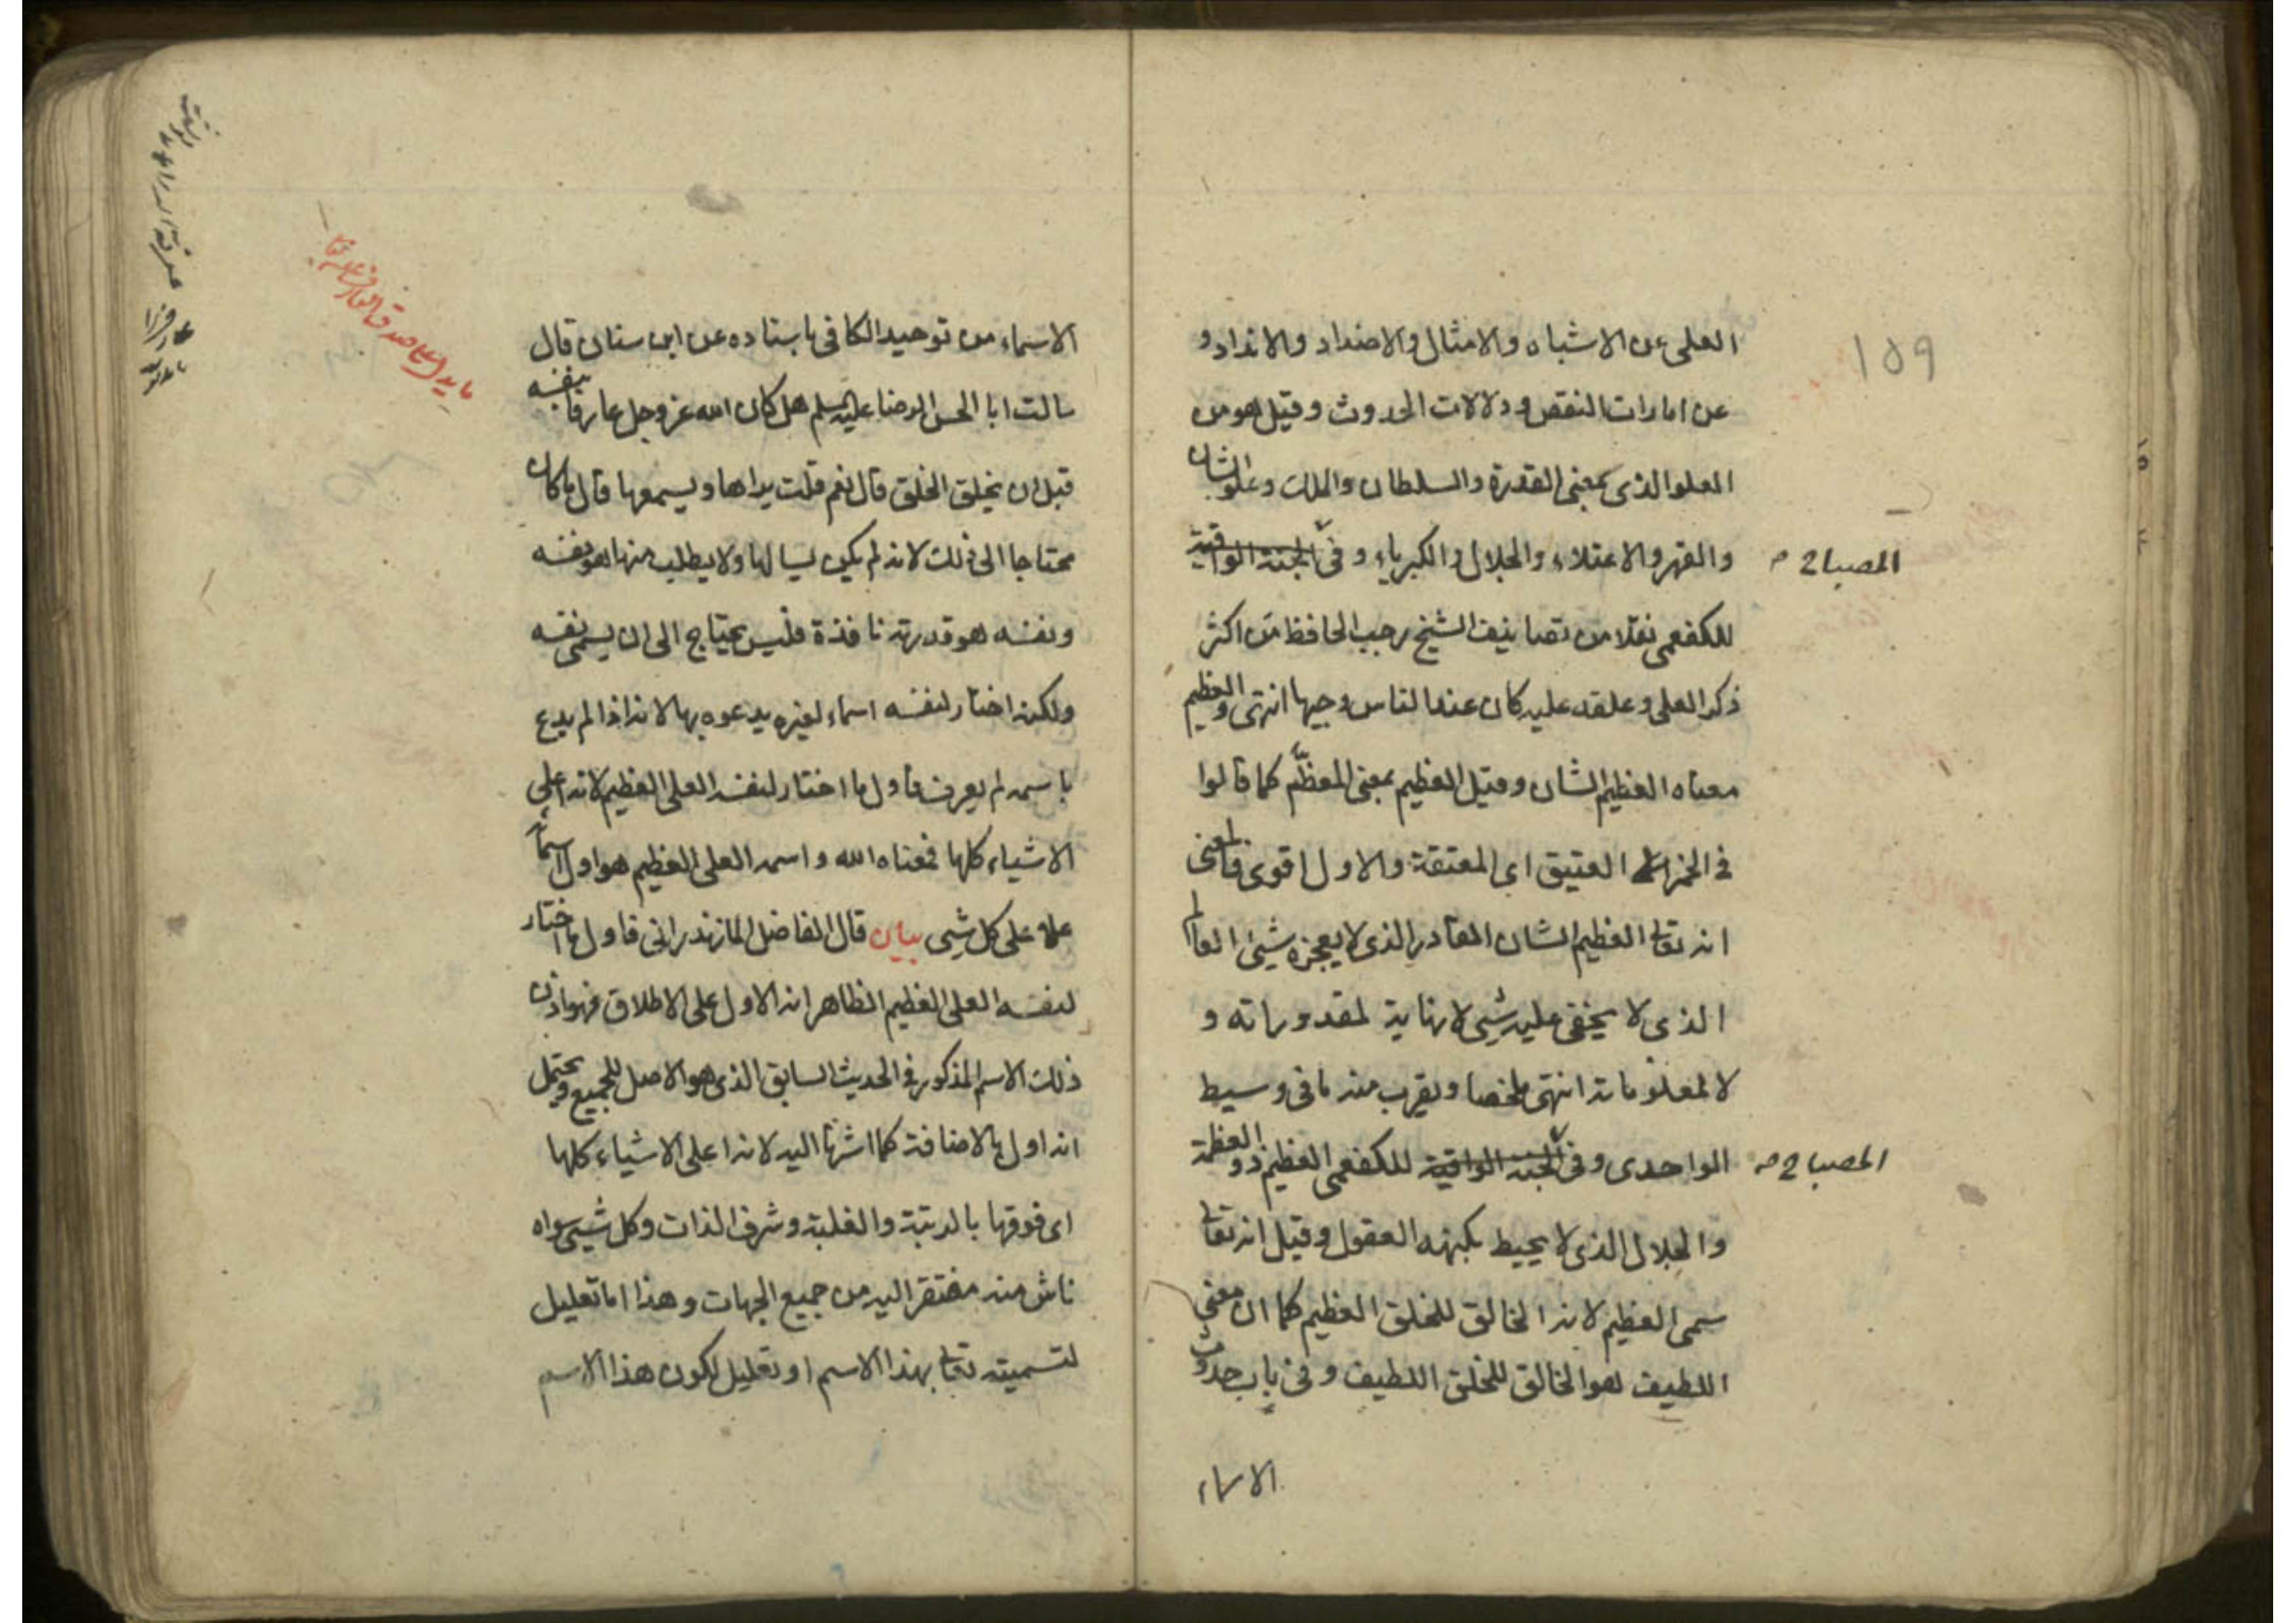 ١٥٩
العلى عن الاشباه والامثال والاضداد والانداد و
عن امارات النقص ودلالات الحدوث وقيل هو من
العلو الذى بمعنى القدرة والسلطان والملك وعلو الشان
والقهر والاعتلاء والجلال والكبرياء وفى الجنة الواقية
المصباح
للكفعمى نقلا من تصانيف الشيخ رجب الحافظ من اكثر
ذكر العلى وعلقه عليه كان عند الناس وجيها انتهى والعظيم
معناه العظيم الشان وقيل العظيم بمعنى المعظّم كما قالوا
فى الخمر العتيق اى المعتقة والاول اقوى فالمعنى
انه تعالى العظيم الشان القادر الذى لا يعجزه شيئ العالم
الذى لا يخفى عليه شيئ لا نهاية لمقدوراته و
لا لمعلوماته انتهى ملخصا ويقرب منه ما فى وسيط
الواحدى وفى الجنة الواقية للكفعمى العظيم ذو العظمة
المصباح
والجلال الذى لا يحيط بكنهه العقول وقيل انه تعالى
سمى العظيم لانه الخالق للخلق العظيم كما ان معنى
اللطيف هو الخالق للخلق اللطيف وفى باب حدوث
الاسماء
الاسماء من توحيد الكافى باسناده عن ابن سنان قال
سالت ابا الحسن الرضا عليه السلم هل كان الله عز وجل عارفا بنفسه
قبل ان يخلق الخلق قال نعم قلت يراها ويسمعها قال ما كان
محتاجا الى ذلك لانه لم يكن يسالها ولا يطلب منها هو نفسه
ونفسه هو قدرته نافذة فليس يحتاج الى ان يسمى نفسه
ولكنه اختار لنفسه اسماء لغيره يدعوه بها لانه اذا لم يدع
باسمه لم يعرف فاول ما اختار لنفسه العلى العظيم لانه اعلى
الاشياء كلها فمعناه الله واسمه العلى العظيم هو اول اسمائه
علا على كل شيئ بيان قال الفاضل المازندرانى فاول ما اختار
لنفسه العلى العظيم الظاهر انه الاول على الاطلاق فهو اذن
ذلك الاسم المذكور فى الحديث السابق الذى هو الاصل للجميع ويحتمل
انه اول بالاضافة كما اشرنا اليه لانه اعلى الاشياء كلها
اى فوقها بالرتبة والغلبة وشرف الذات وكل شيئ سواه
ناش منه مفتقر اليه من جميع الجهات وهذا اما تعليل
لتسميته تعالى بهذا الاسم او تعليل لكون هذا الاسم